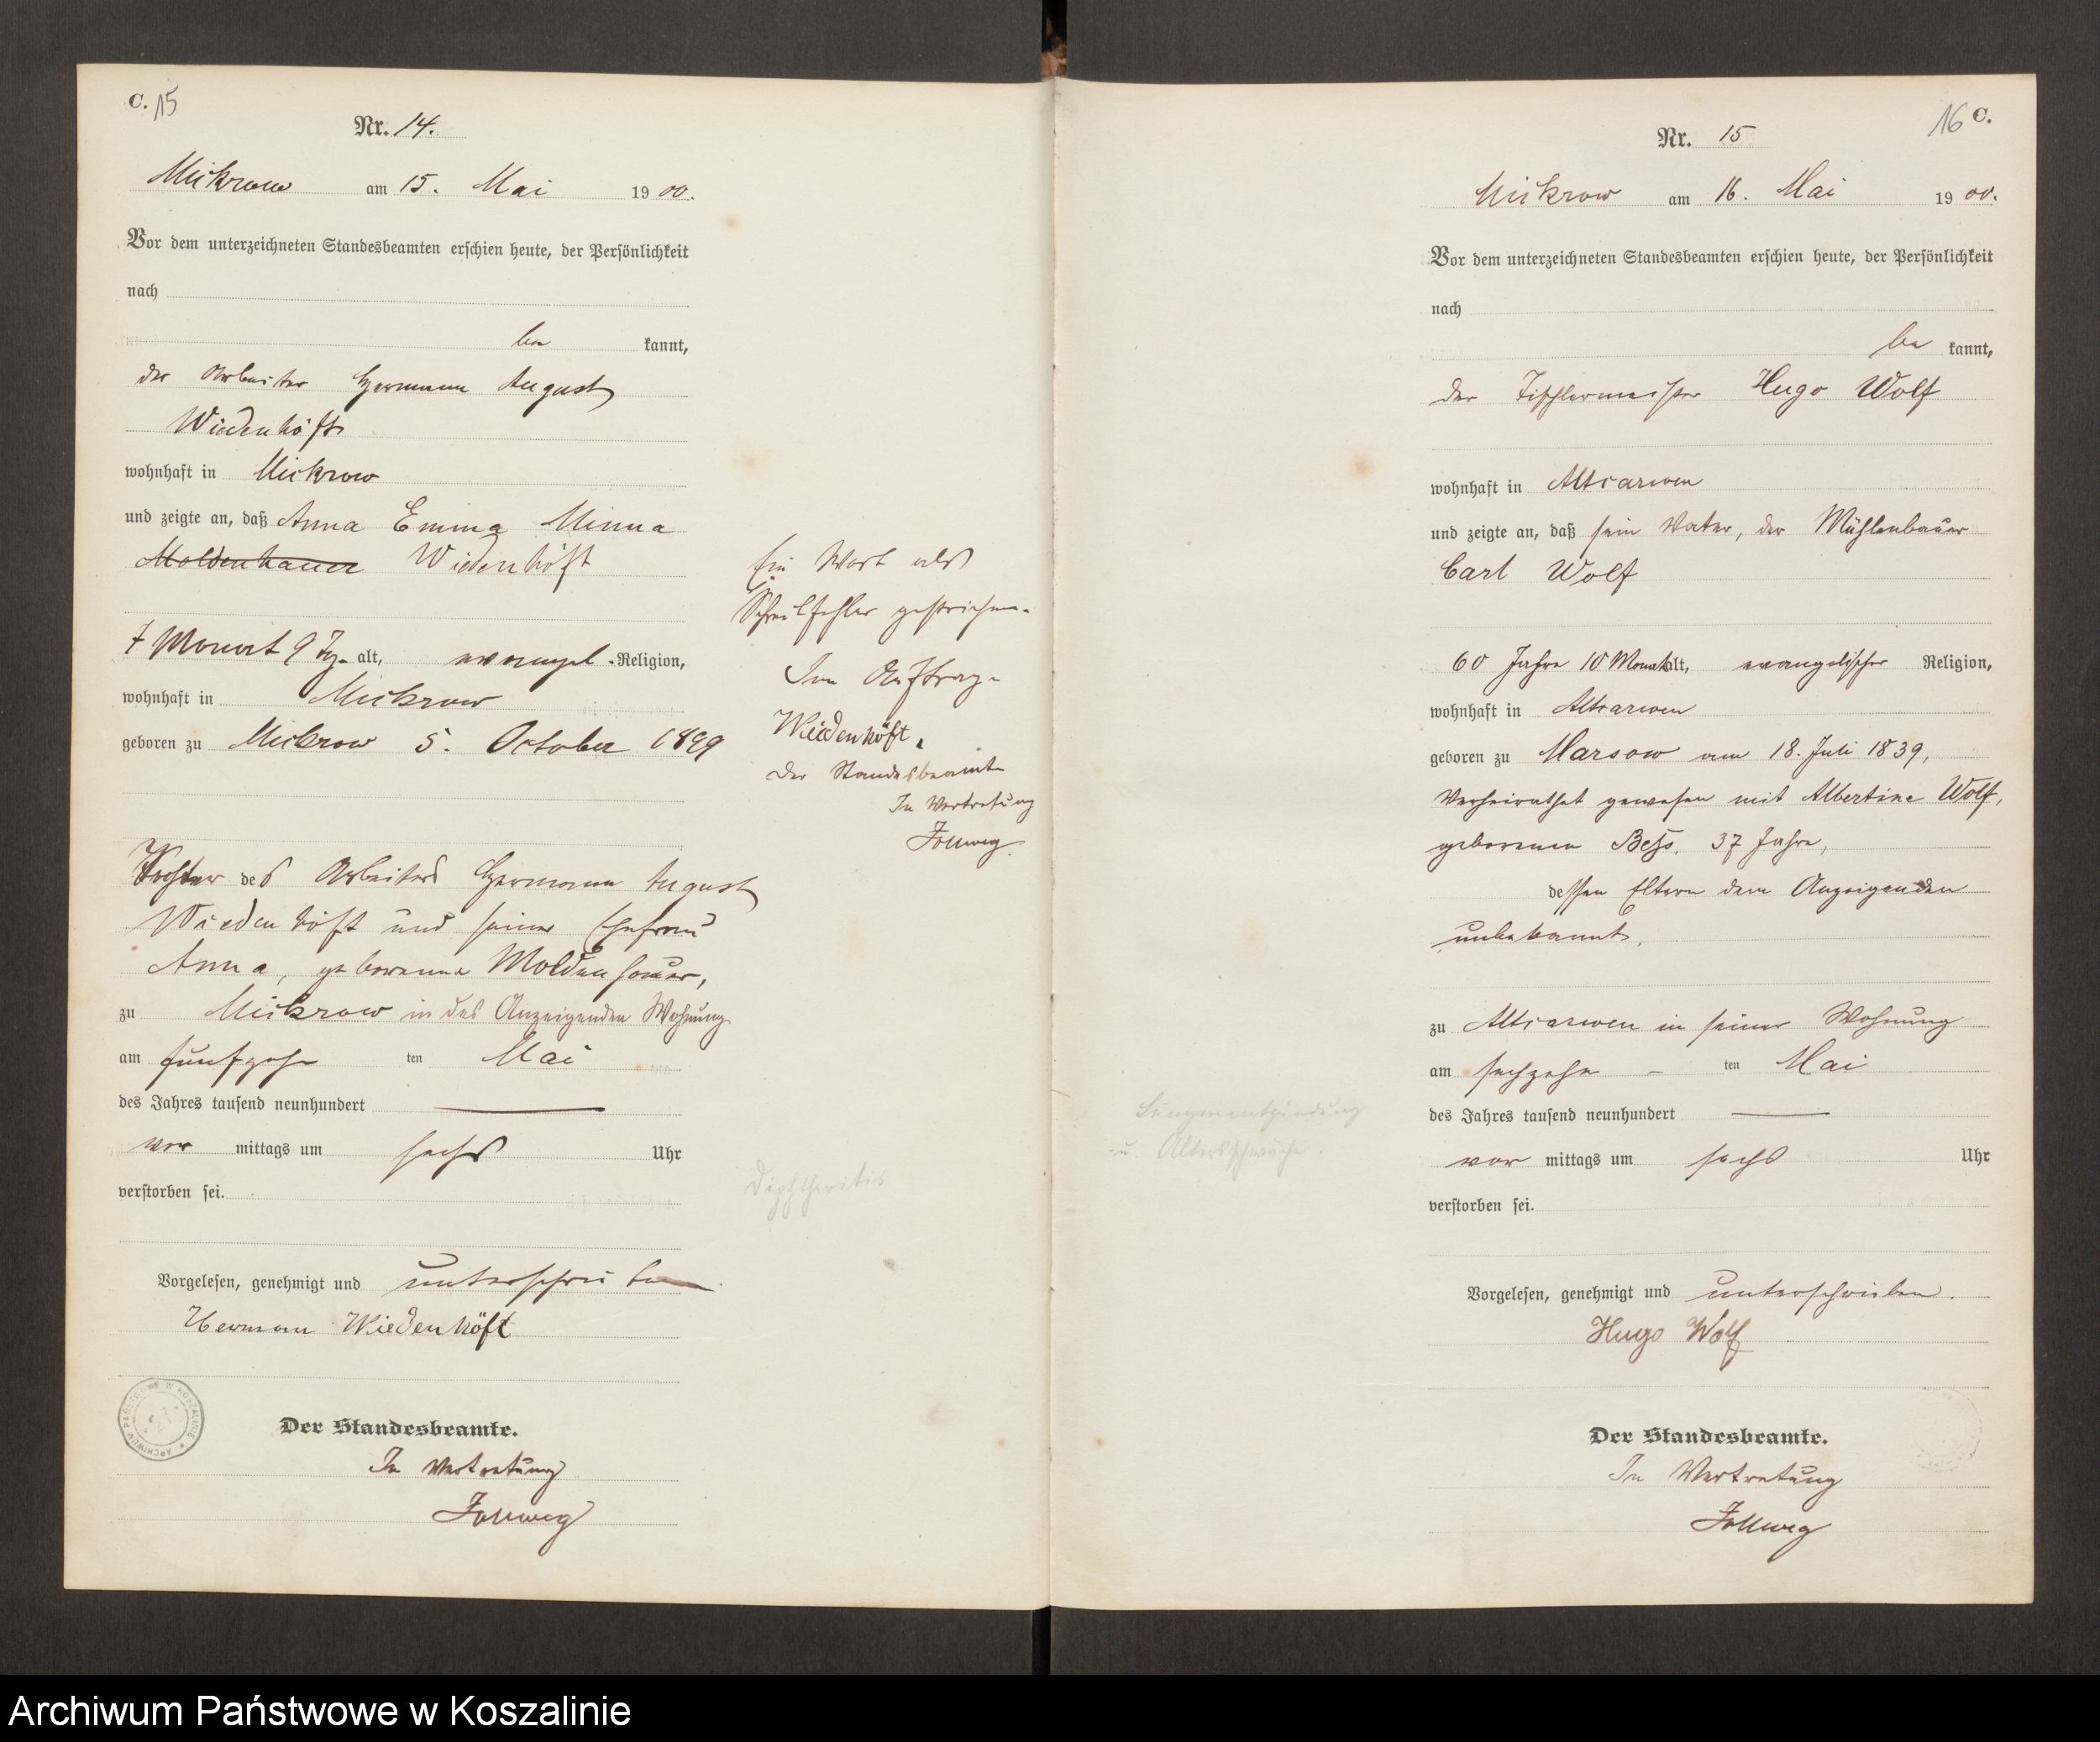 C. 15
Nr. 14.
Mickrow am 15. Mai 1900.
Vor dem unterzeichneten Standesbeamten erschien heute, der Persönlichkeit
nach
be kannt,
der Arbeiter Hermann August
Wiedenhöft
wohnhaft in Mickrow
und zeigte an, daß Anna Emma Minna
Moldenhauer Wiedenhöft
7 Monat 9 Tg. alt, evangel. Religion,
wohnhaft in Mickrow
geboren zu Mickrow 5. October 1899
Tochter des Arbeiters Hermann August
Wiedenhöft und seiner Ehefrau
Anna, geborenne Moldenhauer,
zu Mickrow in des Anzeigenden Wohnung
am fünfzehn ten Mai
des Jahres tausend neunhundert
vor mittags um sechs Uhr
verstorben sei.
Vorgelesen, genehmigt und unterschrieben
Herman Wiedenhöft
Der Standesbeamte.
In Vertretung
Zollweg
Ein Wort als
Schreibfehler gestrichen.
Im Auftrag.
Wiedenhöft.
Der Standesbeamte
In Vertretung
Zollweg
Diphtheritis
ARCHIWUM PAŃSTWOWE W KOSZALINIE
21
16 C.
Nr. 15
Mickrow am 16. Mai 1900.
Vor dem unterzeichneten Standesbeamten erschien heute, der Persönlichkeit
nach
be kannt,
der Tischlermeister Hugo Wolf
wohnhaft in Altcarwen
und zeigte an, daß sein Vater, der Mühlenbauer
Carl Wolf
60 Jahre 10 Monat alt, evangelischer Religion,
wohnhaft in Altcarwen
geboren zu Marsow am 18. Juli 1839,
verheirathet gewesen mit Albertine Wolf,
geborenen 37 Jahre,
dessen Eltern dem Anzeigenden
unbekannt,
zu Altcarwen in seiner Wohnung
am sechzehn ten Mai
des Jahres tausend neunhundert
vor mittags um sechs Uhr
verstorben sei.
Vorgelesen, genehmigt und unterschrieben.
Hugo Wolf
Der Standesbeamte.
In Vertretung
Zollweg
Lungenentzündung
u. Altersschwäche.
Archiwum Państwowe w Koszalinie